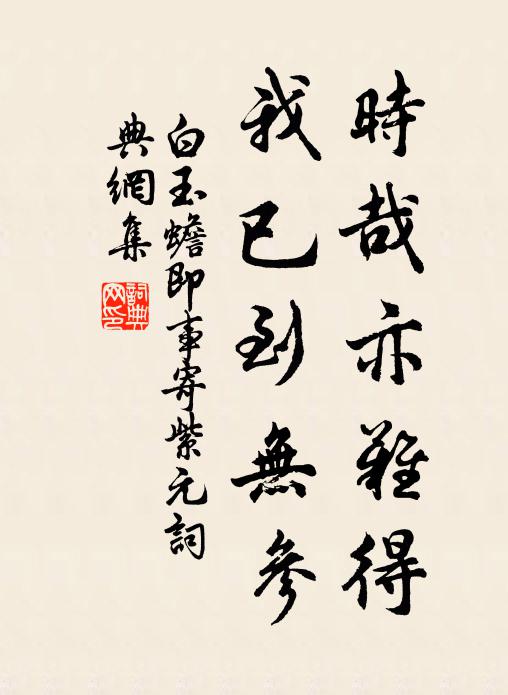 時哉亦難得
我已到無參
白玉蟾即事寄紫元詞
典網集
詞典网印